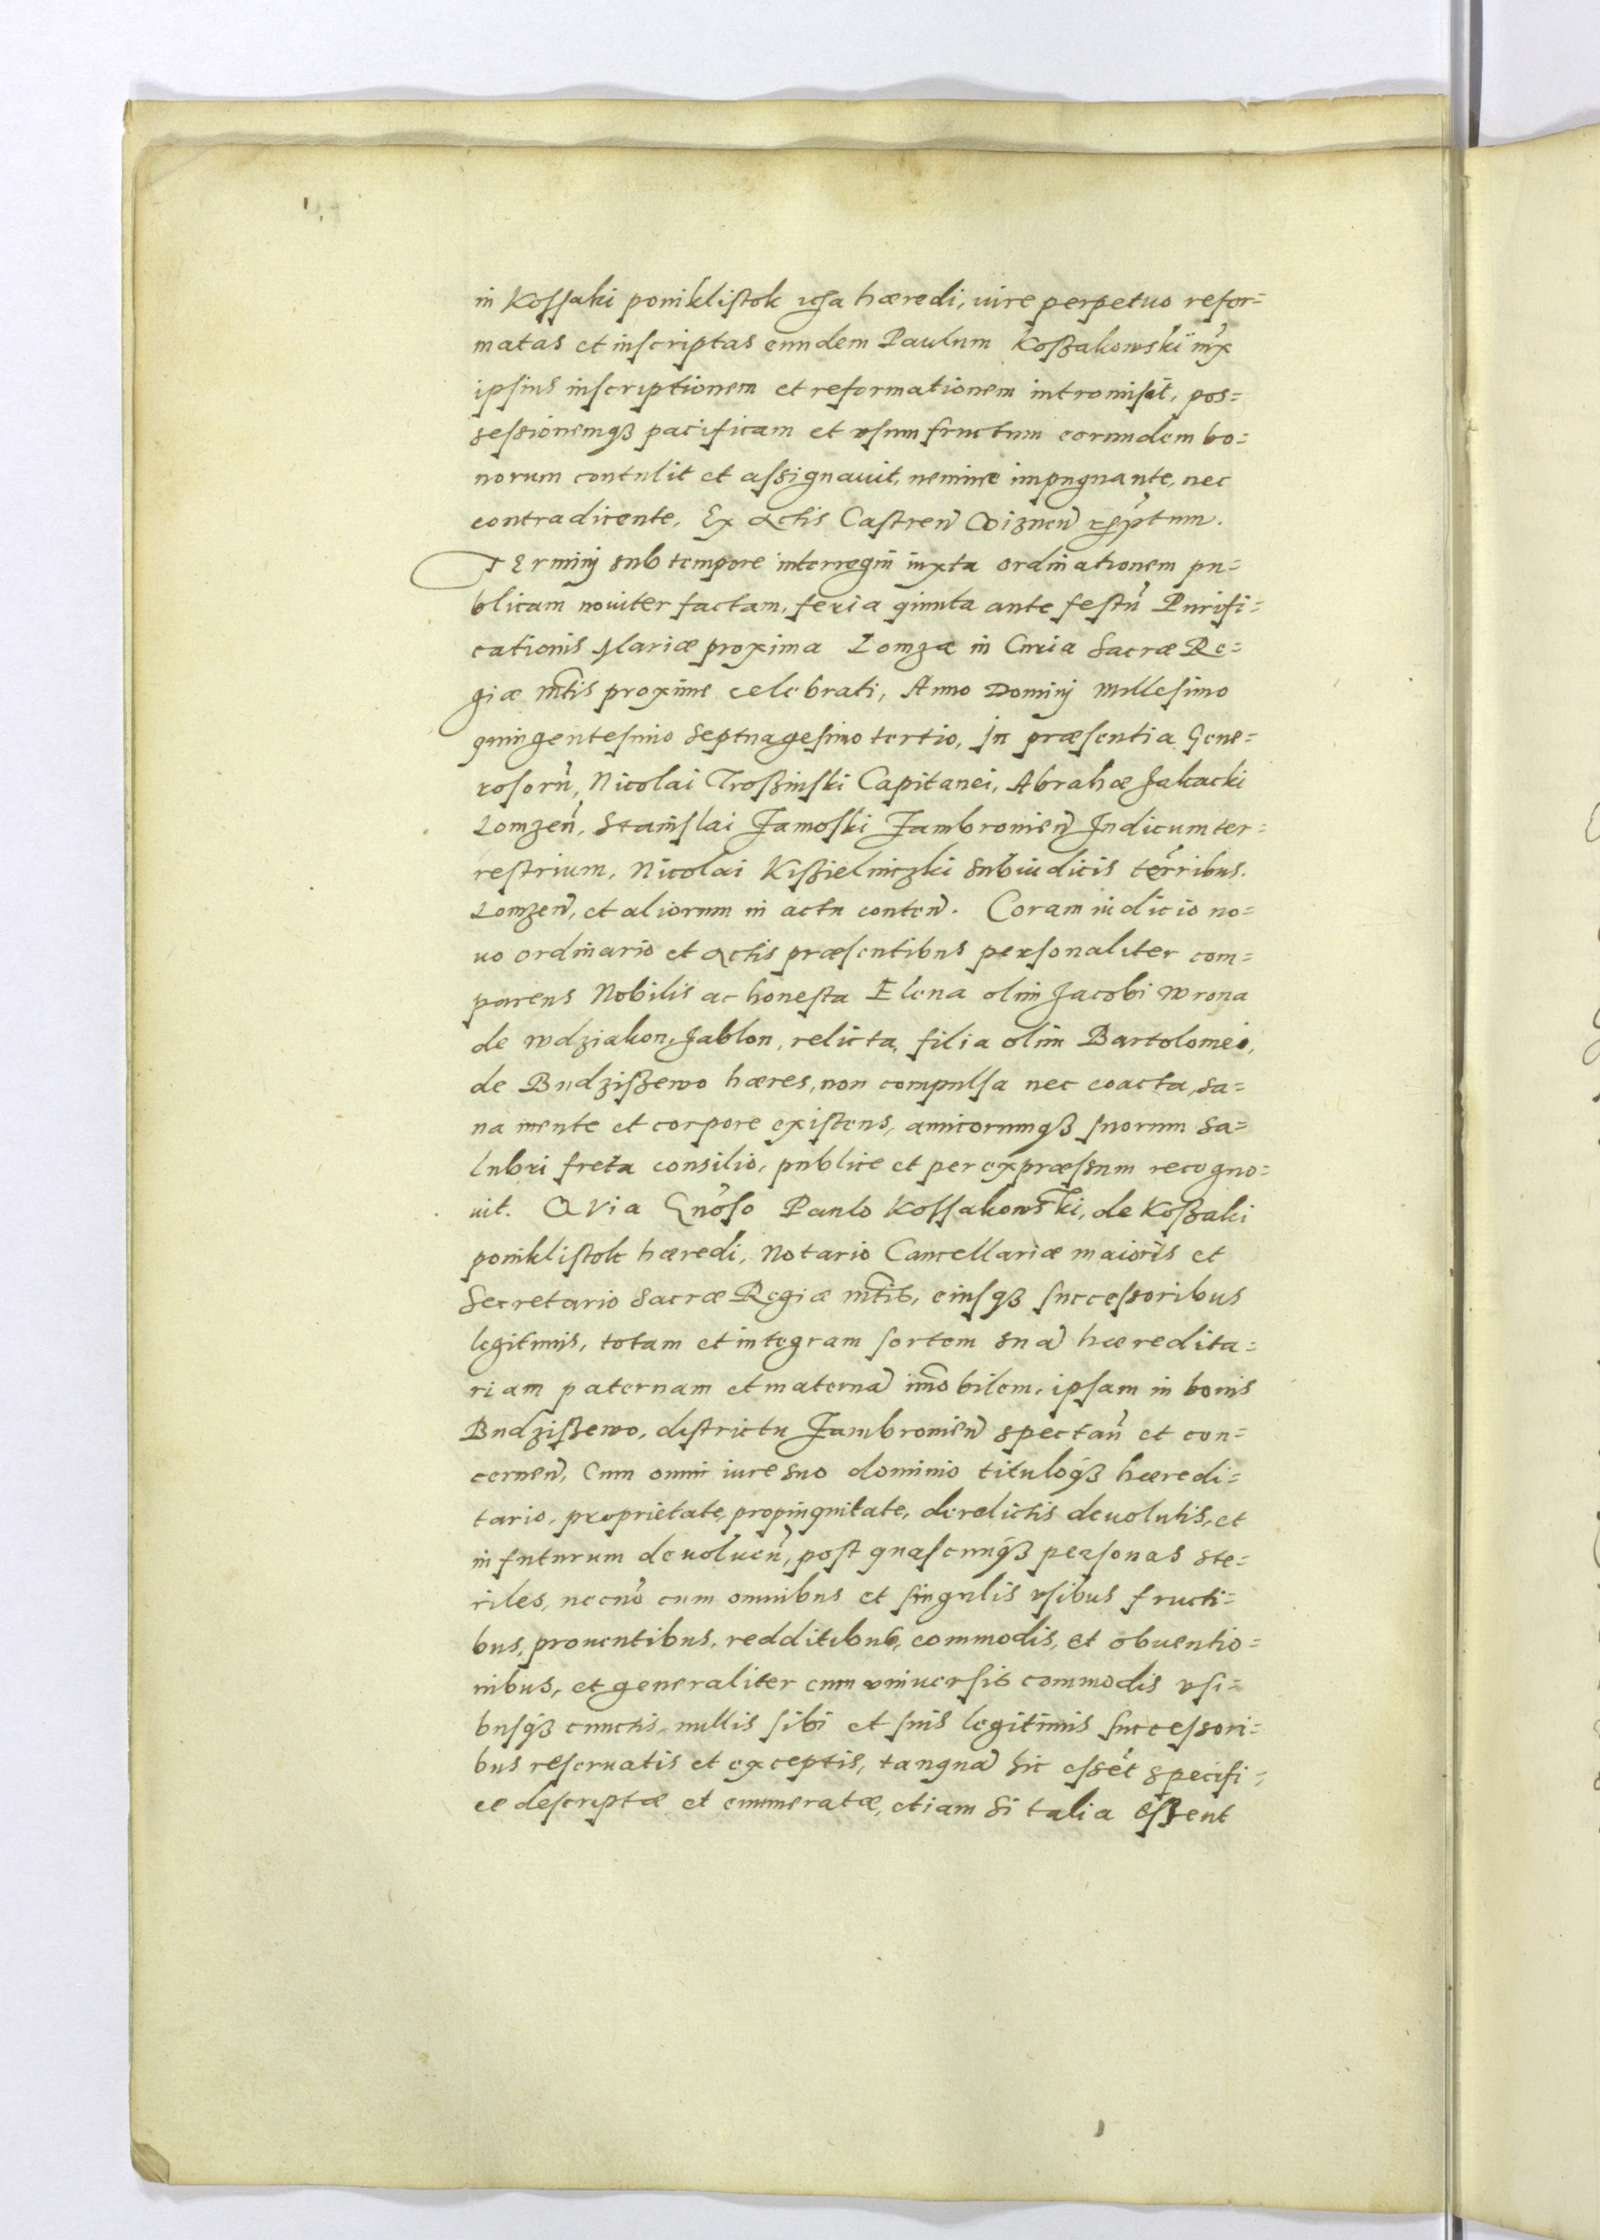 in Kossaki poniklistok haeredi, iure perpetuo refor=
matas et inscriptas eundem Paulum Koßakowski iux
ipsius inscriptionem et reformationem intromisit, pos=
sessionemqȝ pacificam et vsumfructum eorundem bo=
norum contulit et assignauit, nemine impugnante, nec
contradicente, Ex Actis Castren Wiznen
TErminj sub tempore interregni iuxta ordinationem pu=
blicam nouiter factam, feria quinta ante festũ Purifi=
cationis Mariæ proxima Lomzæ in Curia Sacræ Re=
giæ Mtis proxime celebrati, Anno Dominj Millesimo
quingentesimo Septuagesimo tertio, In præsentia Gene=
rosorũ, Nicolai Troßinski Capitanei, Abrahæ Jakacki
Lomzeñ, Stanislai Zamoski Zambromieñ Judicum ter=
restrium, Nicolai Kißielniczki Subiudicis terribus.
Lomzeñ, et aliorum in actu conteñ. Coram iudicio no=
uo ordinario et Actis præsentibus personaliter com=
parens Nobilis ac honesta Elena olim Jacobi Wrona
de Wdziakon Jablon, relicta, filia olim Bartolomei,
de Budzißewo hæres, non compulsa nec coacta, sa=
na mente et corpore existens, amicorumqȝ suorum sa=
lubri freta consilio, publice et per expræssum recogno=
uit. QVia Gnõso Paulo Kossakowski, de Koßaki
poniklistok hæredi, Notario Cancellariæ maioris et
Secretario Sacræ Regiæ Mtis, eiusqȝ successoribus
legitimis, totam et integram sortem suã hæredita=
riam paternam et maternã imobilem, ipsam in bonis
Budzißewo, districtu Zambromieñ spectañ et con=
cerneñ, Cum omni iure suo dominio tituloqȝ hæredi=
tario, proprietate, propinquitate, derelictis deuolutis, et
in futurum deuolueñ, post quascunqȝ personas ste=
riles, necnõ cum omnibus et singulis vsibus fructi=
bus, prouentibus, redditibus, commodis, et obuentio=
nibus, et generaliter cum vniuersis commodis vsi=
busqȝ cunctis, nullis sibi et suis legitimis successori=
bus reseruatis et exceptis, tanquã hic essẽt specifi=
ce descriptæ et enumeratæ, etiam si talia eßent